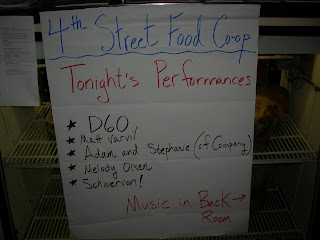 4th Street Food Co-op
Tonight's Performances
★ D60
★ Matt Varvil
★ Adam and Stephanie (of Company)
★ Melody Olsen
★ Schwervon!
Music in Back →
Room